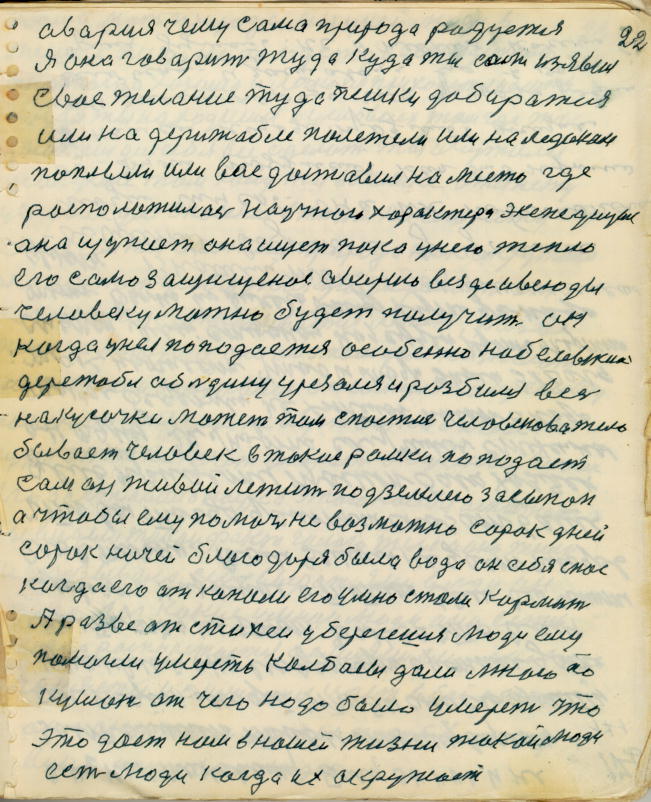 22
авария чему сама природа радуется
А она говарит туда куда ты сам изявил
свое желание туда пешки добиратся
или на дерижабле полетели или на ледокол
поплыли или вас доставили на место где
росположилась научного характера экспедиция
ана щупает она ищет пока у него тепло
его само защищеное аварию везде
человеку можно будет получит он
когда у нея поподается особенно на
дережабл об льдину урезался и розбился вся
на кусочки может там спостися человек
бывает человек в такие рамки поподает
сам он живой лежит под землею засыпан
а чтобы ему помоч не возможно сорок дней
сорок ночей благодоря была вода он себя спас
когда его аткапали его умно стали кормит
А разве от стихеи уберегешся люди ему
помогли умереть колбасы дали много по
кушал от чего надо было умерет что
это дает нам в нашей жизни такой люди
ест люди когда их окружает